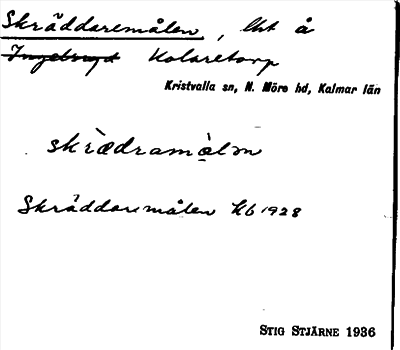 Skräddaremålen, lht å
Ingebryd Kolaretorp
Kristvalla sn, N. Möre hd, Kalmar län
skrædramå̀lən
Skräddaremålen Kb 1928
STIG STJÄRNE 1936